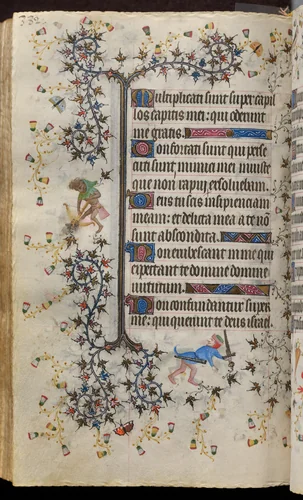 Multiplicati sunt super capil
los capitis mei: qui oderunt
me gratis.
Confortati sunt qui perse
cuti sunt inimici mei iniuste
que non rapui exsoluebam.
Deus tu scis insipienciam
meam: et delicta mea a te no
sunt abscondita.
Non erubescant in me qui
expectant te domine domine
uirtutum.
Non confundantur super
me: qui querunt te deus israel.